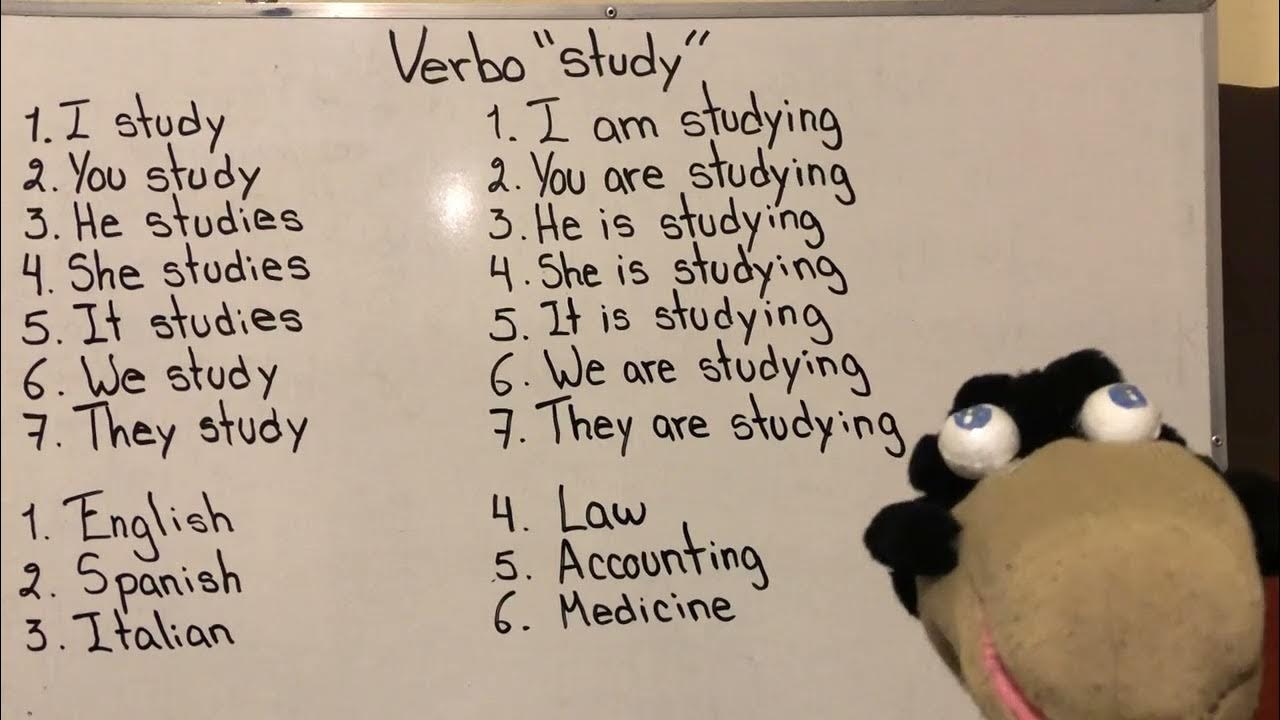 Verbo "study"
1. I study
2. You study
3. He studies
4. She studies
5. It studies
6. We study
7. They study
1. I am studying
2. You are studying
3. He is studying
4. She is studying
5. It is studying
6. We are studying
7. They are studying
1. English
2. Spanish
3. Italian
4. Law
5. Accounting
6. Medicine